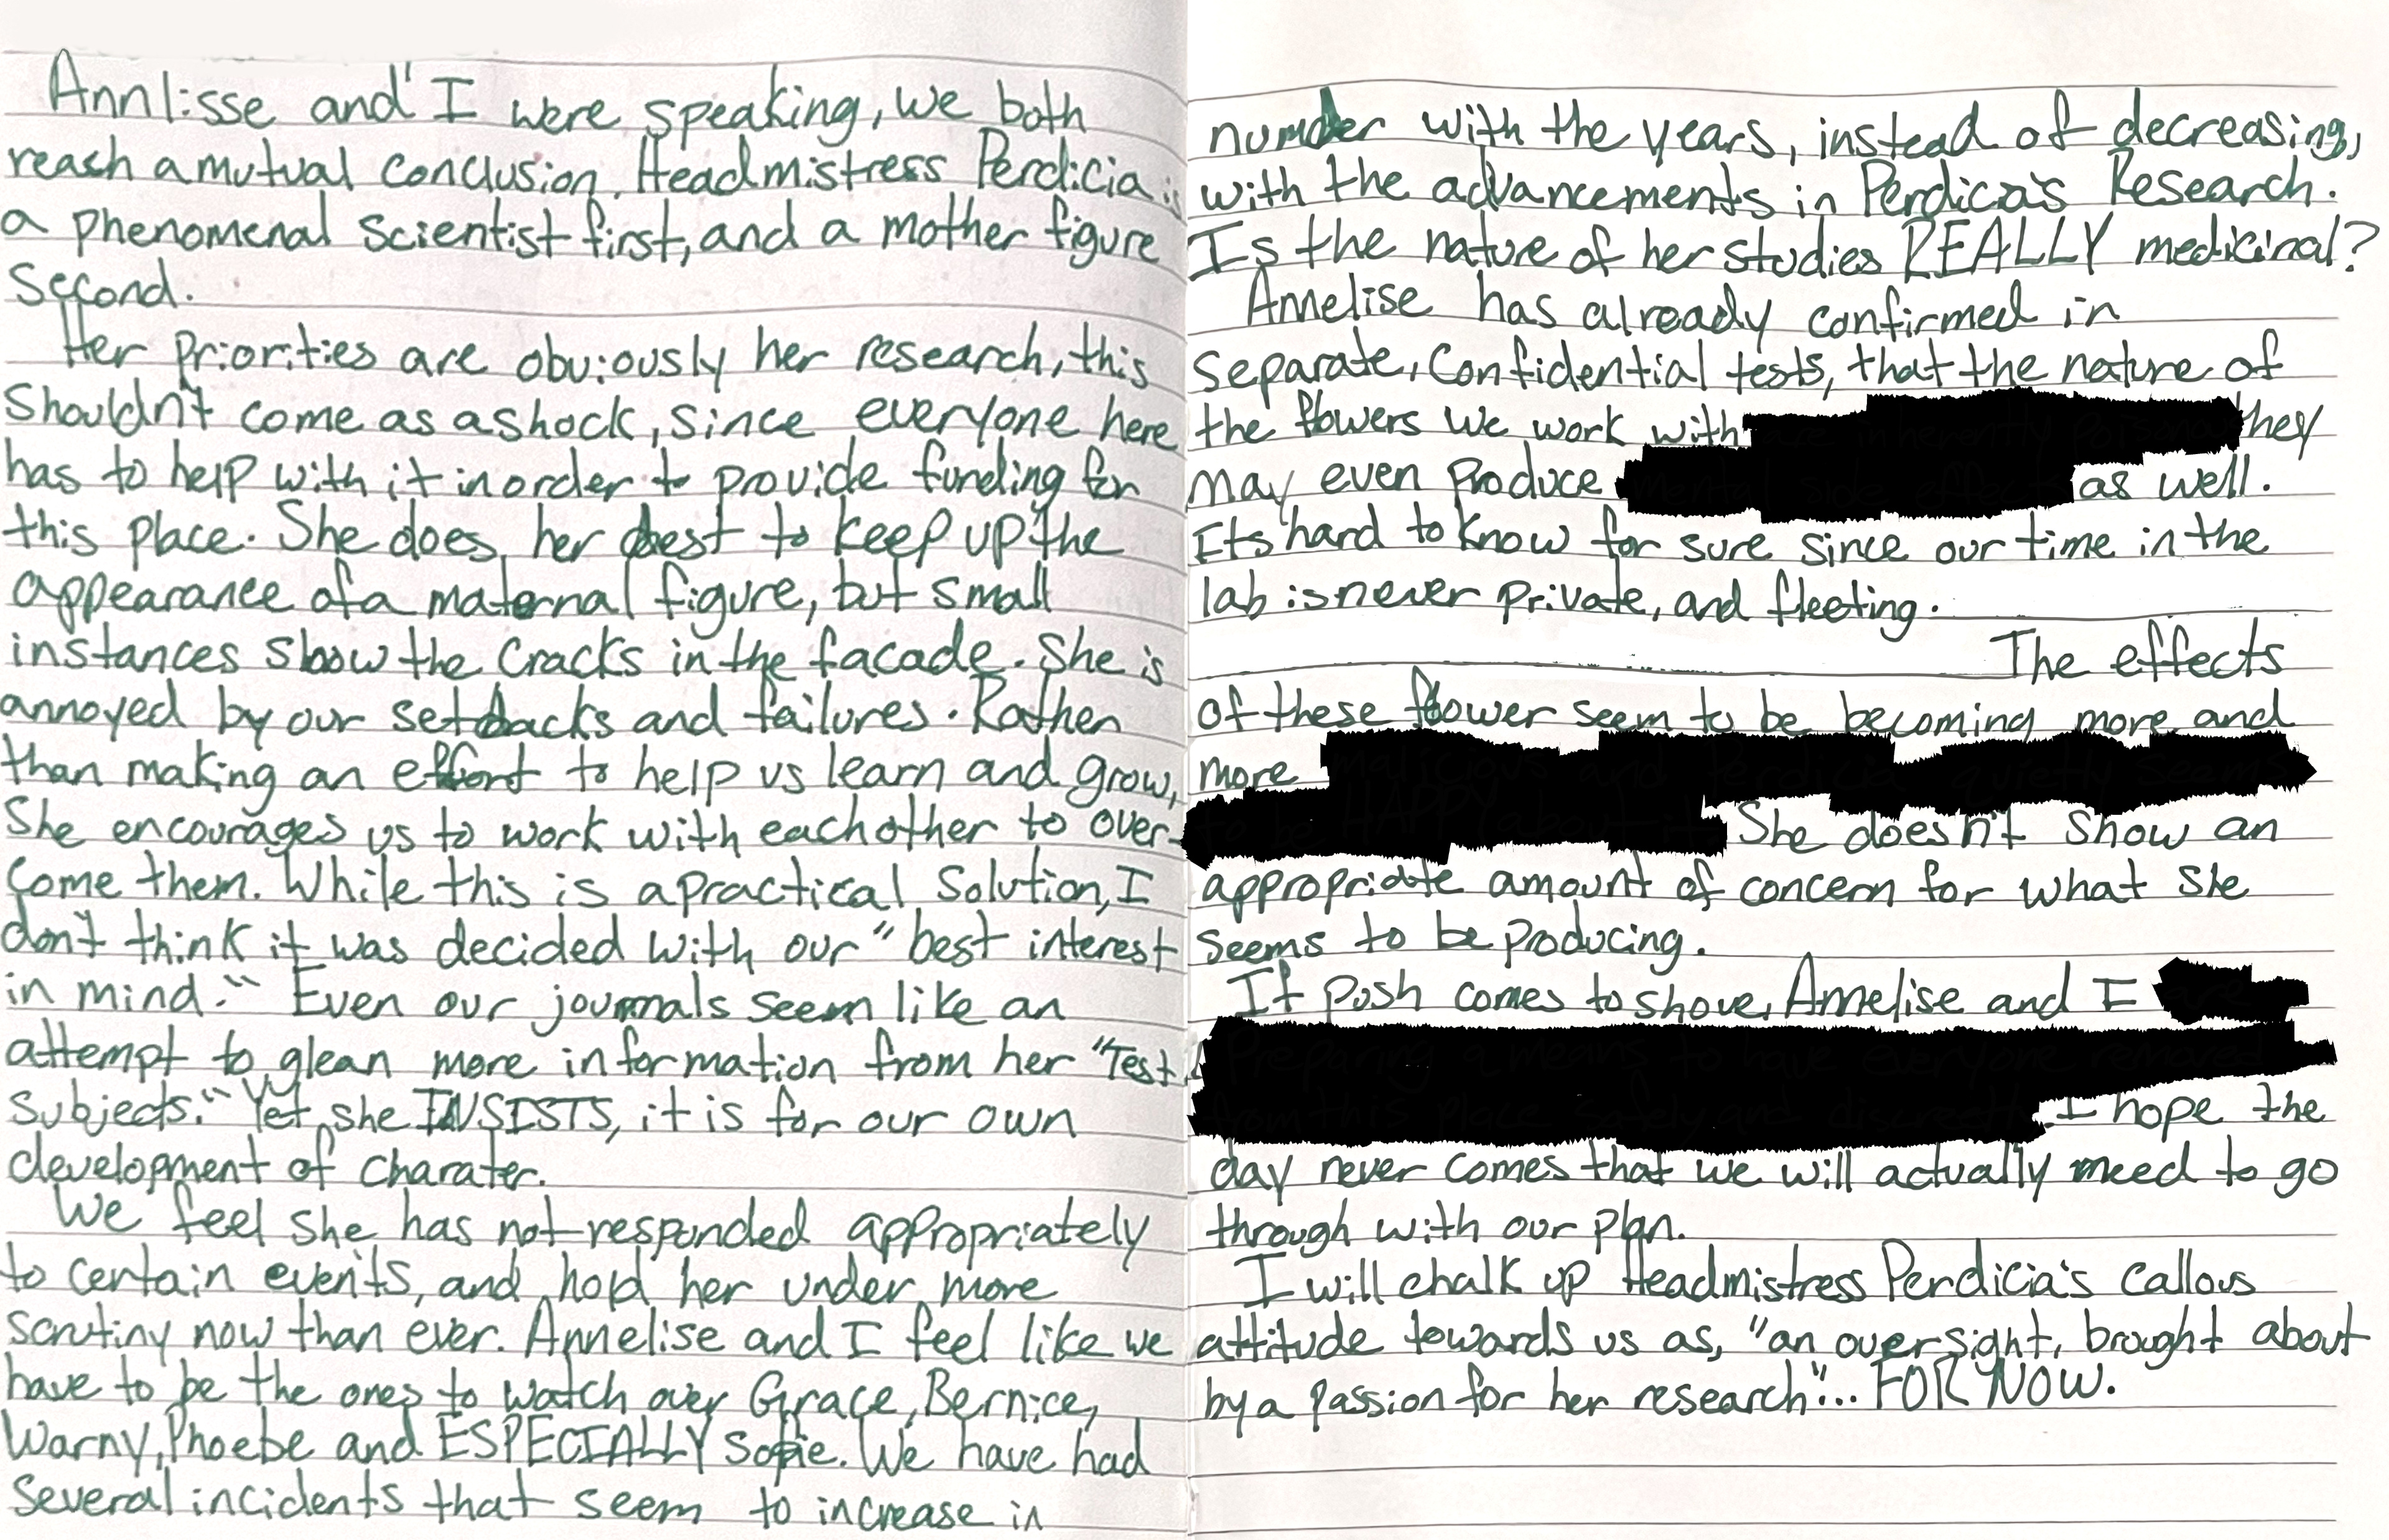 Annlisse and I were speaking, we both
reach a mutual conclusion. Headmistress Perdicia is
a phenomenal scientist first, and a mother figure
second.
Her priorities are obviously her research, this
shouldn't come as a shock, since everyone here
has to help with it in order to provide funding for
this place. She does her best to keep up the
appearance of a maternal figure, but small
instances show the cracks in the facade. She is
annoyed by our setbacks and failures. Rather
than making an effort to help us learn and grow,
She encourages us to work with eachother to over-
come them. While this is a practical solution, I
don't think it was decided with our "best interest
in mind." Even our journals seem like an
attempt to glean more information from her "Test
subjects." Yet, she INSISTS, it is for our own
development of charater.
We feel she has not responded appropriately
to certain events, and hold her under more
scrutiny now than ever. Annelise and I feel like we
have to be the ones to watch over Grace, Bernice,
Warny, Phoebe and ESPECIALLY Sopie. We have had
several incidents that seem to increase in
number with the years, instead of decreasing,
with the advancements in Perdica's Research.
Is the nature of her studies REALLY medicinal?
Annelise has already confirmed in
separate, confidential tests, that the nature of
the flowers we work with they
may even produce as well.
Its hard to know for sure since our time in the
lab is never private, and fleeting.
The effects
of these flower seem to be becoming more and
more
She doesn't show an
appropriate amount of concern for what she
seems to be producing.
If push comes to shove, Annelise and I
I hope the
day never comes that we will actually need to go
through with our plan.
I will chalk up Headmistress Perdicia's callous
attitude towards us as, "an oversight, brought about
by a passion for her research"... FOR NOW.